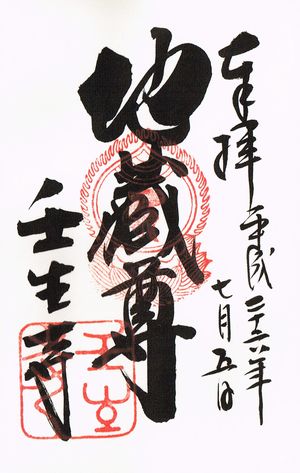 奉拝 平成二十六年
七月五日
地蔵尊
壬生寺